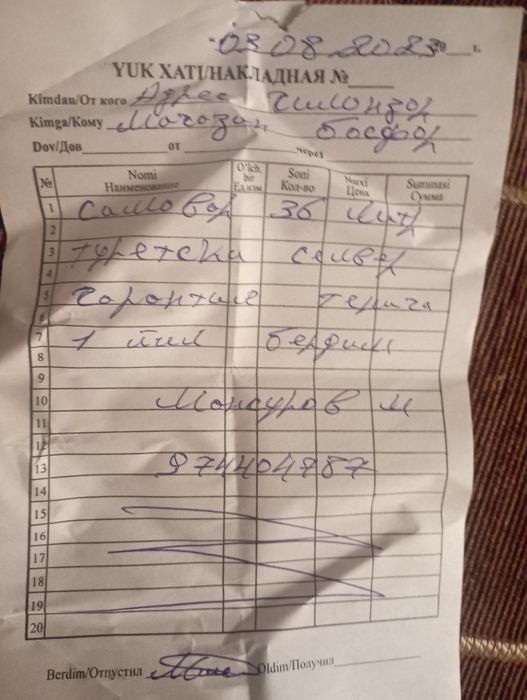 "03 08 2023 20 г.
YUK XATI/НАКЛАДНАЯ №
Kimdan/От кого Адрес Чилонзор
Kimga/Кому Магазин
Dov/Дов от через
№ Nomi Наименование O'lch. bir Ед изм Soni Кол-во Narxi Цена Summasi Сумма
1 Самовар 36 литр
2
3 турецски
4
5 гарантия
6
7 1 йил бердим
8
9
10 Мансуров М
11
12
13 974404787
14
15
16
17
18
19
20
Berdim/Отпустил Oldim/Получил